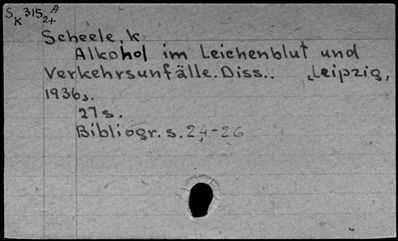 S K 315 2+ A
Scheele, K
Alkohol im Leichenblut und
Verkehrsunfälle. Diss.. Leipzig,
1936.
27 s.
Bibliogr. s. 24-26